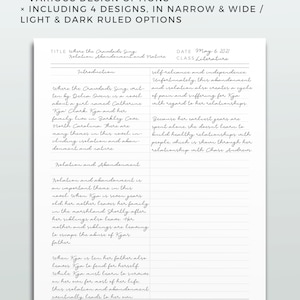 × INCLUDING 4 DESIGNS, IN NARROW & WIDE /
LIGHT & DARK RULED OPTIONS
TITLE Where the Crawdads Sing
Isolation, Abandonment and Nature
DATE May 5, 2021
CLASS Literature
Introduction
Where the Crawdads Sing, writ-
ten by Delia Owens, is a novel
about a girl named Catherine
Kya Clark. Kya and her
family live in Barkley Cove
North Carolina. There are
many themes in this novel in-
cluding isolation and aban-
donment and nature.
Isolation and Abandonment
Isolation and abandonment is
an important theme in this
novel. When Kya is seven years
old her mother leaves her family
in the marshland. Shortly after
her siblings also leave. Her
mother and siblings are leaving
to escape the abuse of Kya's
father.
When Kya is ten her father also
leaves Kya to fend for herself.
While Kya must learn to survive
on her own for most of her life
this isolation and abandonment
eventually leads to her own
self reliance and independence.
Unfortunately this abandonment
and isolation also creates a cycle
of power and suffering for Kya
with regard to her relationships.
Because her earliest years are
spent alone, she doesn't learn to
build healthy relationships with
people, which is shown through her
relationship with Chase Andrews.